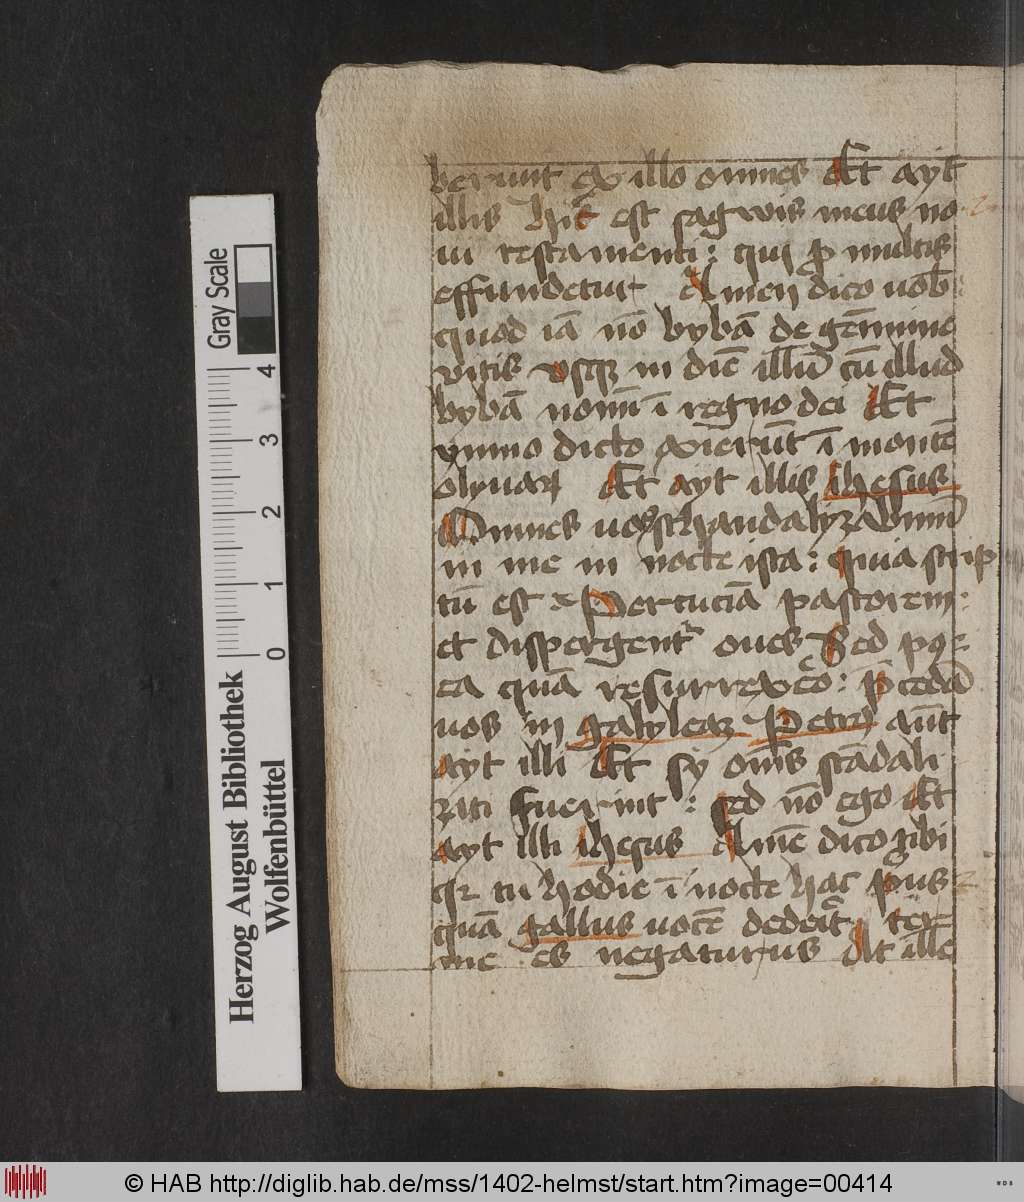 berunt ex illo omnes Et ayt
illis hic est sagwis meus no
ui testamenti : qui p multis
effundetur Amen dico uob
quod iā nō bybā de gēnimine
vitis vsqꝫ in diē illū cū illud
bybā nouū ī regno dei Et
ymno dicto exierūt ī montē
olyuaꝝ Et ayt illis ihesus
Omnes uos schandalyzabimī
in me in nocte ista : quia scrip
tū est Percuciā pastorem :
et dispergentʳ oues Sed pꝰt
ea quā resurrexeo : p̄cedā
uos in galyleaꝫ Petrꝰ aūt
ayt illi Et sy oms scādali
zati fuerint : sed nō ego Et
ayt illi ihesus Amē dico tibi
qꝛ tu hodie ī nocte hac pus
quā gallus uocē dedeit ter
me es negaturus At ille
Gray Scale
4
3
2
1
0
Herzog August Bibliothek
Wolfenbüttel
© HAB http://diglib.hab.de/mss/1402-helmst/start.htm?image=00414